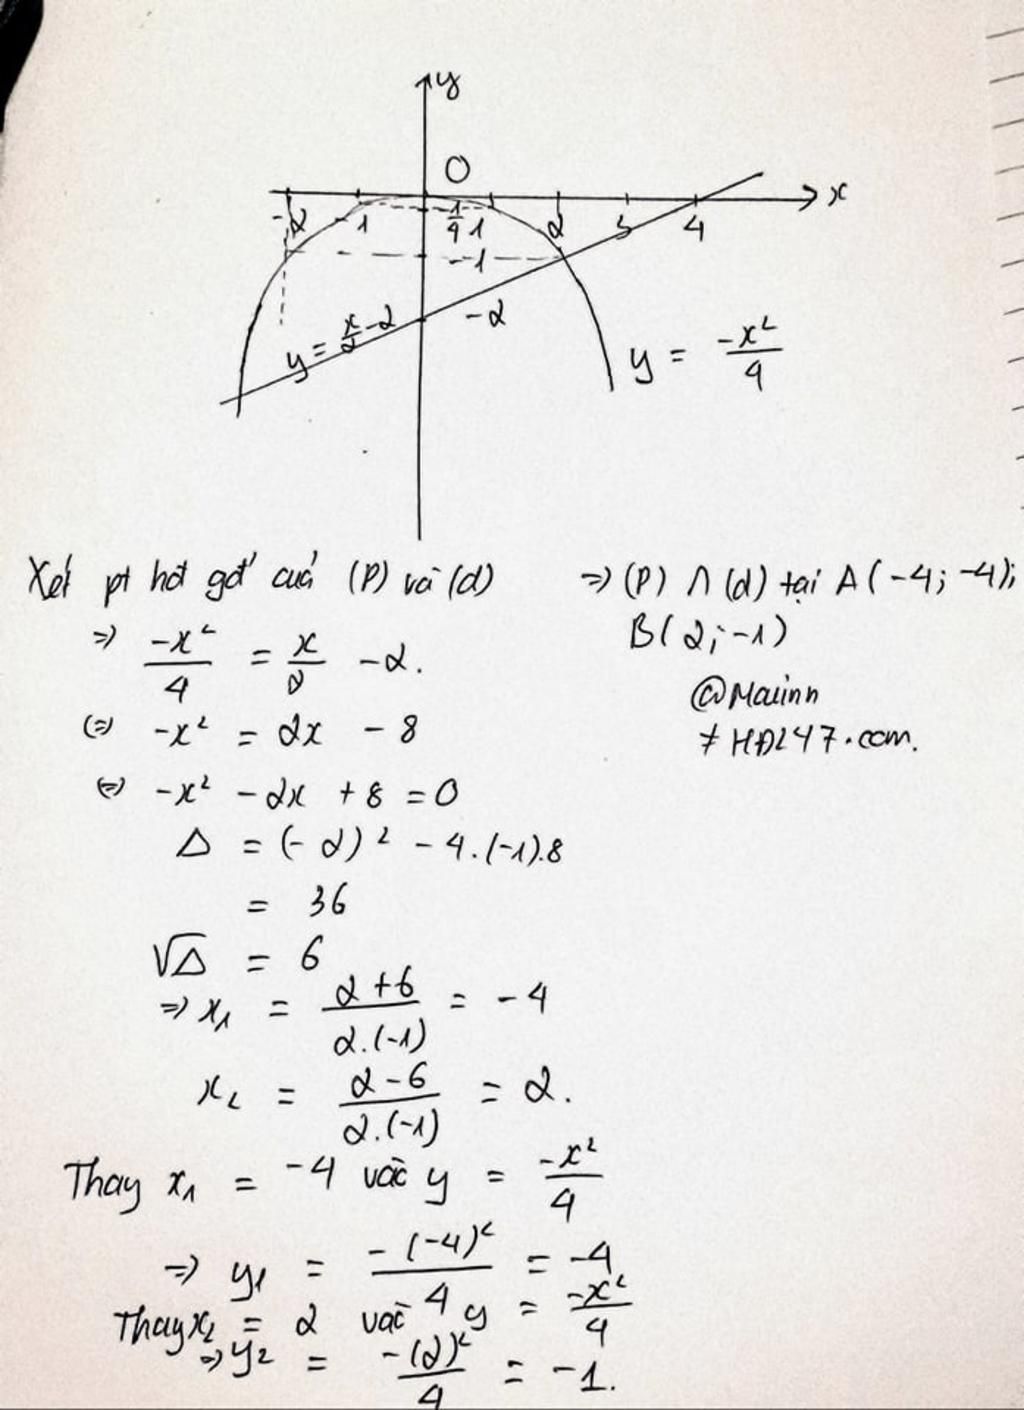 y
O
x
-2 -1 1/4 1 2 3 4
-1
-2
y = x/2 -2
y = -x²/4
Xét pt hđ gđ của (P) và (d)
=> -x²/4 = x/2 -2.
(=) -x² = 2x - 8
(=) -x² - 2x + 8 = 0
Δ = (-2)² - 4.(-1).8
= 36
√Δ = 6
=> x₁ = 2+6/2.(-1) = -4
x₂ = 2-6/2.(-1) = 2.
Thay x₁ = -4 vào y = -x²/4
=> y₁ = -(-4)²/4 = -4
Thay x₂ = 2 vào y = -x²/4
=> y₂ = -(2)²/4 = -1.
=> (P) ∩ (d) tại A(-4; -4);
B(2; -1)
@Maiinh
≠ HĐ247.com.